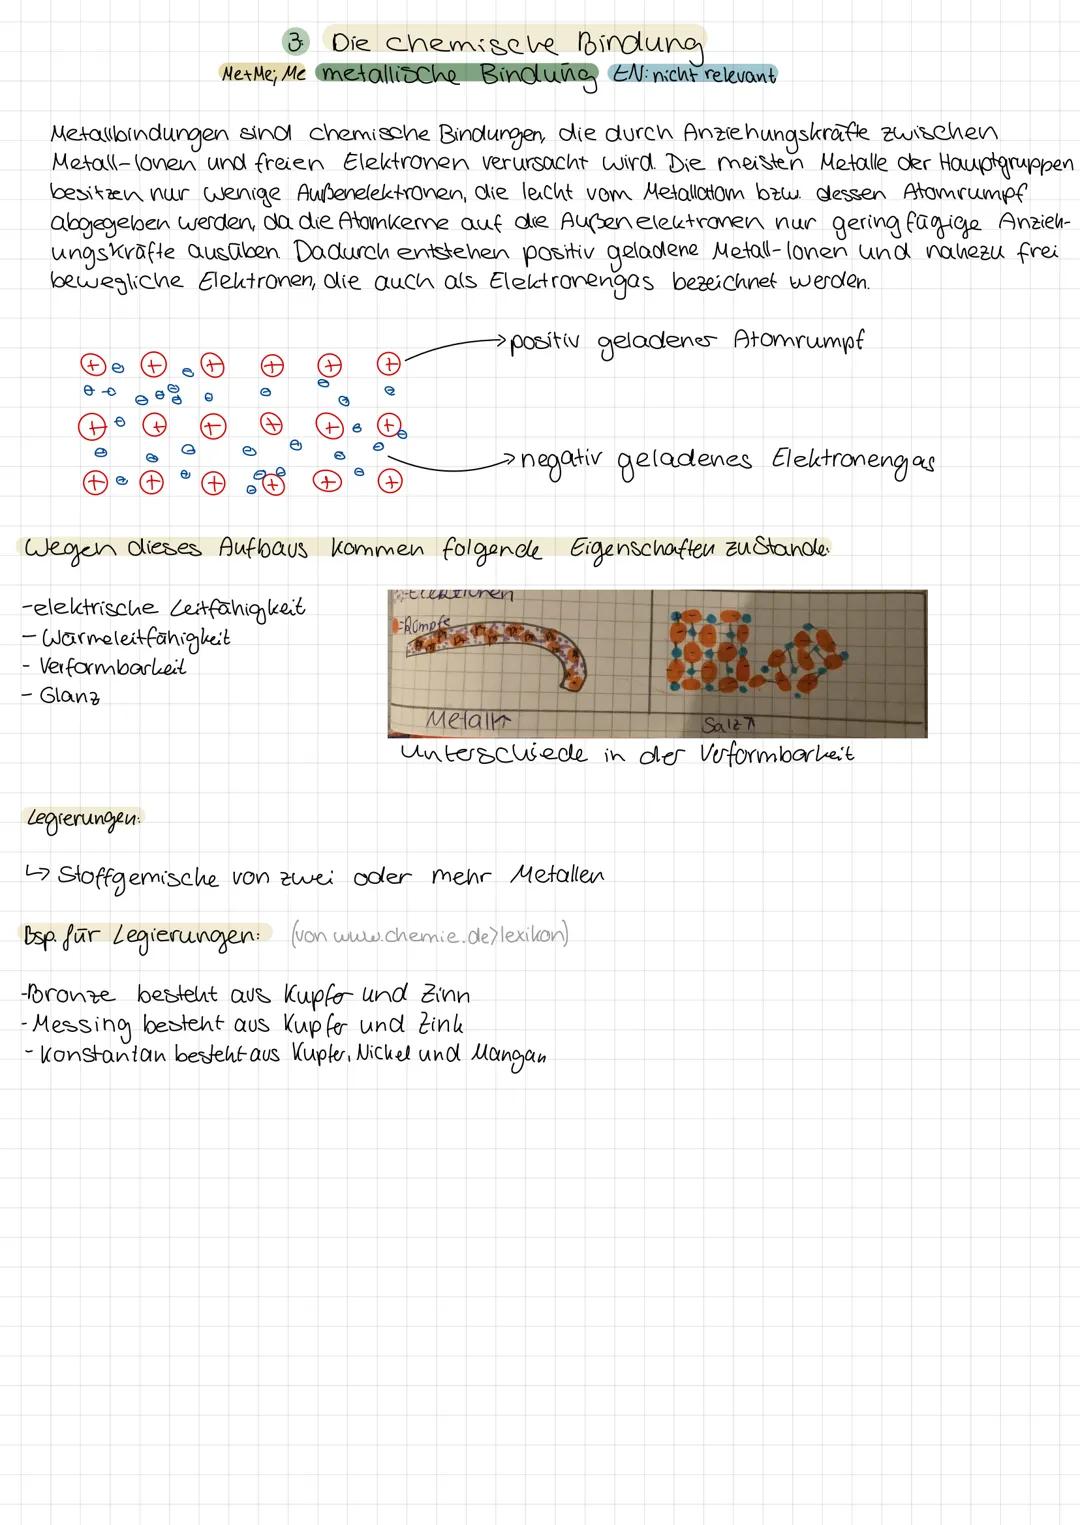 3. Die chemische Bindung
Me+Me; Me metallische Bindung EN: nicht relevant
Metallbindungen sind chemische Bindungen, die durch Anziehungskräfte zwischen
Metall-Ionen und freien Elektronen verursacht wird. Die meisten Metalle der Hauptgruppen
besitzen nur wenige Außenelektronen, die leicht vom Metallatom bzw. dessen Atomrumpf
abgegeben werden, da die Atomkerne auf die Außenelektronen nur geringfügige Anzieh-
ungskräfte ausüben. Dadurch entstehen positiv geladene Metall-Ionen und nahezu frei
bewegliche Elektronen, die auch als Elektronengas bezeichnet werden.
→ positiv geladener Atomrumpf
→ negativ geladenes Elektronengas
Wegen dieses Aufbaus kommen folgende Eigenschaften zustande:
- elektrische Leitfähigkeit
- Wärmeleitfähigkeit
- Verformbarkeit
- Glanz
-Elektronen
=Rümpfe
Metall↑
Salz↑
Unterschiede in der Verformbarkeit
Legierungen:
↳ Stoffgemische von zwei oder mehr Metallen
Bsp. für Legierungen: (von www.chemie.de>lexikon)
-Bronze besteht aus Kupfer und Zinn
- Messing besteht aus Kupfer und Zink
- Konstantan besteht aus Kupfer, Nickel und Mangan